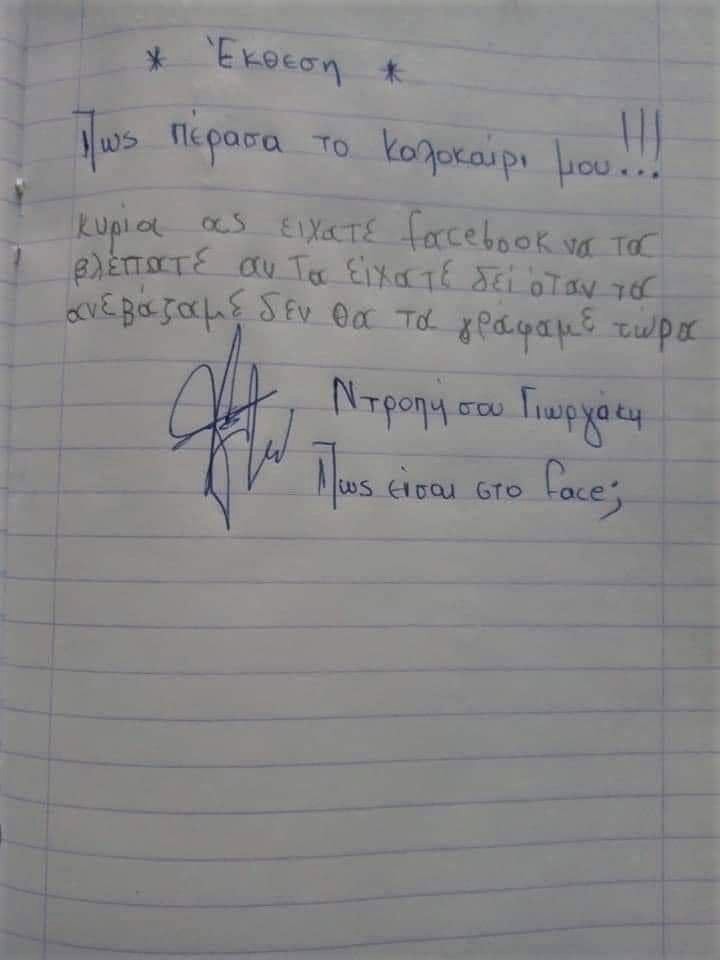 * Έκθεση *
Πως πέρασα το καλοκαίρι μου...!!!
κυρία ας είχατε facebook να τα
βλέπατε αν τα είχατε δεί όταν τα
ανεβάζαμε δεν θα τα γράφαμε τώρα
Ντροπή σου Γιωργάκη
Πως είσαι στο face;